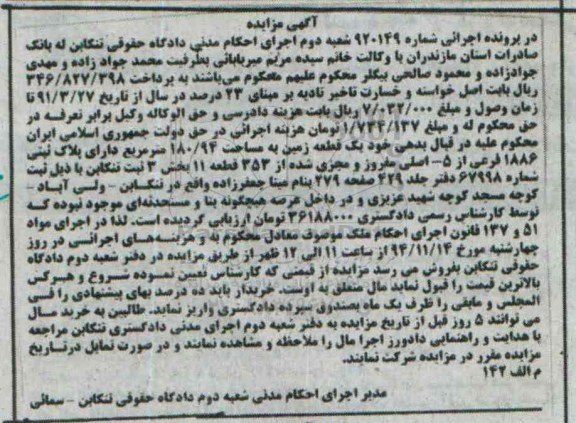 آگهی مزایده
در پرونده اجرائی شماره ۹۲۰۱۴۹ شعبه دوم اجرای احکام مدنی دادگاه حقوقی تنکابن له بانک
صادرات استان مازندران با وکالت خانم سیده مریم میربابائی بطرفیت محمد جواد زاده و مهدی
جوادزاده و محمود صالحی بیگلر محکوم علیهم محکوم می‌باشند به پرداخت ۳۴۶/۸۲۷/۳۹۸
ریال بابت اصل خواسته و خسارت تاخیر تادیه بر مبنای ۲۳ درصد در سال از تاریخ ۹۱/۳/۲۷ تا
زمان وصول و مبلغ ۷/۰۳۲/۰۰۰ ریال بابت هزینه دادرسی و حق الوکاله وکیل برابر تعرفه در
حق محکوم له و مبلغ ۱/۷۳۴/۱۳۷ تومان هزینه اجرائی در حق دولت جمهوری اسلامی ایران
محکوم علیه در قبال بدهی خود یک قطعه زمین به مساحت ۱۸۰/۹۴ مترمربع دارای پلاک ثبتی
۱۸۸۶ فرعی از ۵- اصلی مفروز و مجزی شده از ۳۵۳ قطعه ۱۱ بخش ۳ ثبت تنکابن با ذیل ثبت
شماره ۶۷۹۹۸ دفتر جلد ۴۲۹ صفحه ۲۷۹ بنام مینا جعفرزاده واقع در تنکابن - ولی آباد -
کوچه مسجد کوچه شهید عزیزی و در داخل عرصه هیچگونه بنا و مستحدثه‌ای موجود نبوده که
توسط کارشناس رسمی دادگستری ۳۶۱۸۸۰۰۰ تومان ارزیابی گردیده است. لذا در اجرای مواد
۵۱ و ۱۳۷ قانون اجرای احکام ملک موصوف معادل محکوم به و هزینه‌های اجرائی در روز
چهارشنبه مورخ ۹۴/۱۱/۱۴ از ساعت ۱۱ الی ۱۲ ظهر از طریق مزایده در دفتر شعبه دوم دادگاه
حقوقی تنکابن بفروش می رسد مزایده از قیمتی که کارشناس تعیین نموده شروع و هرکس
بالاترین قیمت را قبول نماید مال متعلق به اوست. خریدار باید ده درصد بهای پیشنهادی را فی
المجلس و مابقی را ظرف یک ماه بصندوق سپرده دادگستری واریز نماید. طالبین به خرید مال
می توانند ۵ روز قبل از تاریخ مزایده به دفتر شعبه دوم اجرای مدنی دادگستری تنکابن مراجعه
با هدایت و راهنمایی دادورز اجرا مال را ملاحظه و مشاهده نمایند و در صورت تمایل درتاریخ
مزایده مقرر در مزایده شرکت نمایند.
م الف ۱۴۲
مدیر اجرای احکام مدنی شعبه دوم دادگاه حقوقی تنکابن - سمائی